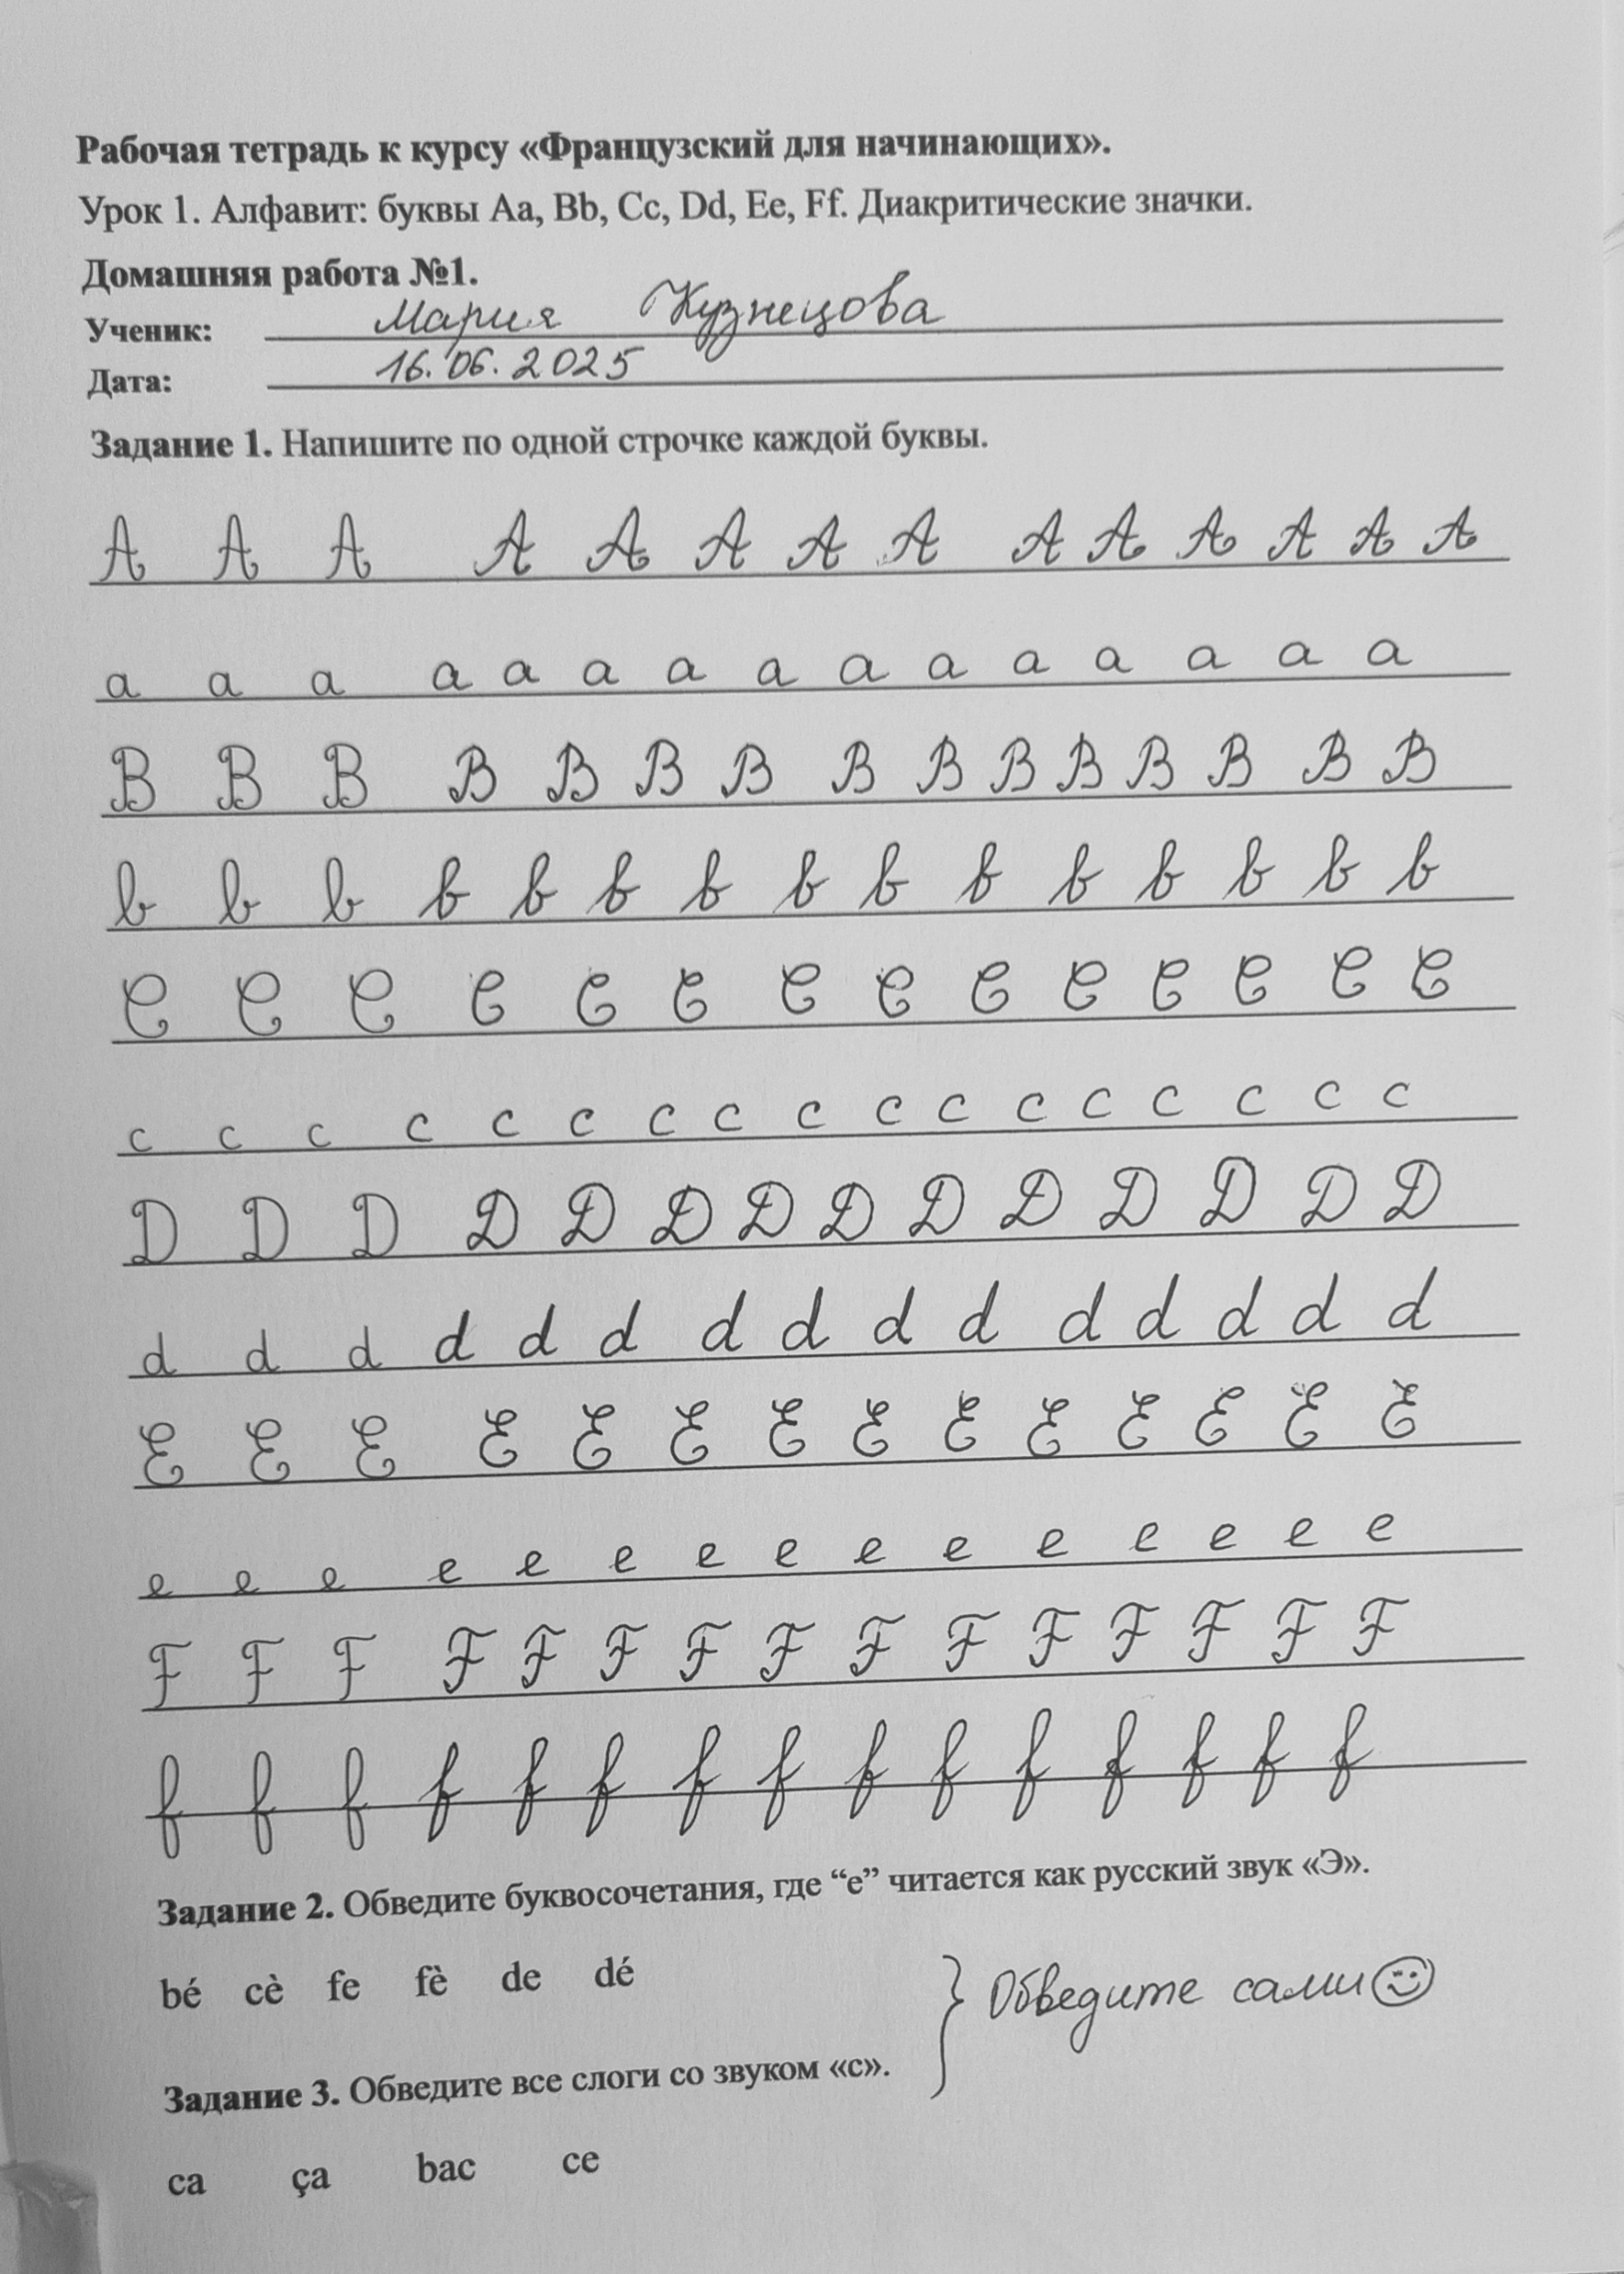 Рабочая тетрадь к курсу «Французский для начинающих».
Урок 1. Алфавит: буквы Aa, Bb, Cc, Dd, Ee, Ff. Диакритические значки.
Домашняя работа №1.
Ученик: Мария Кузнецова
Дата: 16.06.2025
Задание 1. Напишите по одной строчке каждой буквы.
A A A A A A A A A A A A A A
a a a a a a a a a a a a a a a
B B B B B B B B B B B B B B B
b b b b b b b b b b b b b b b
C C C C C C C C C C C C C C
c c c c c c c c c c c c c c c c c
D D D D D D D D D D D D D D
d d d d d d d d d d d d d d d
E E E E E E E E E E E E E E
e e e e e e e e e e e e e e e
F F F F F F F F F F F F F F F
f f f f f f f f f f f f f f f
Задание 2. Обведите буквосочетания, где “e” читается как русский звук «Э».
bé cè fe fè de dé
Обведите сами
Задание 3. Обведите все слоги со звуком «с».
ca ça bac ce